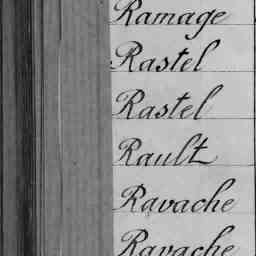 Ramage
Rastel
Rastel
Rault
Ravache
Ravache